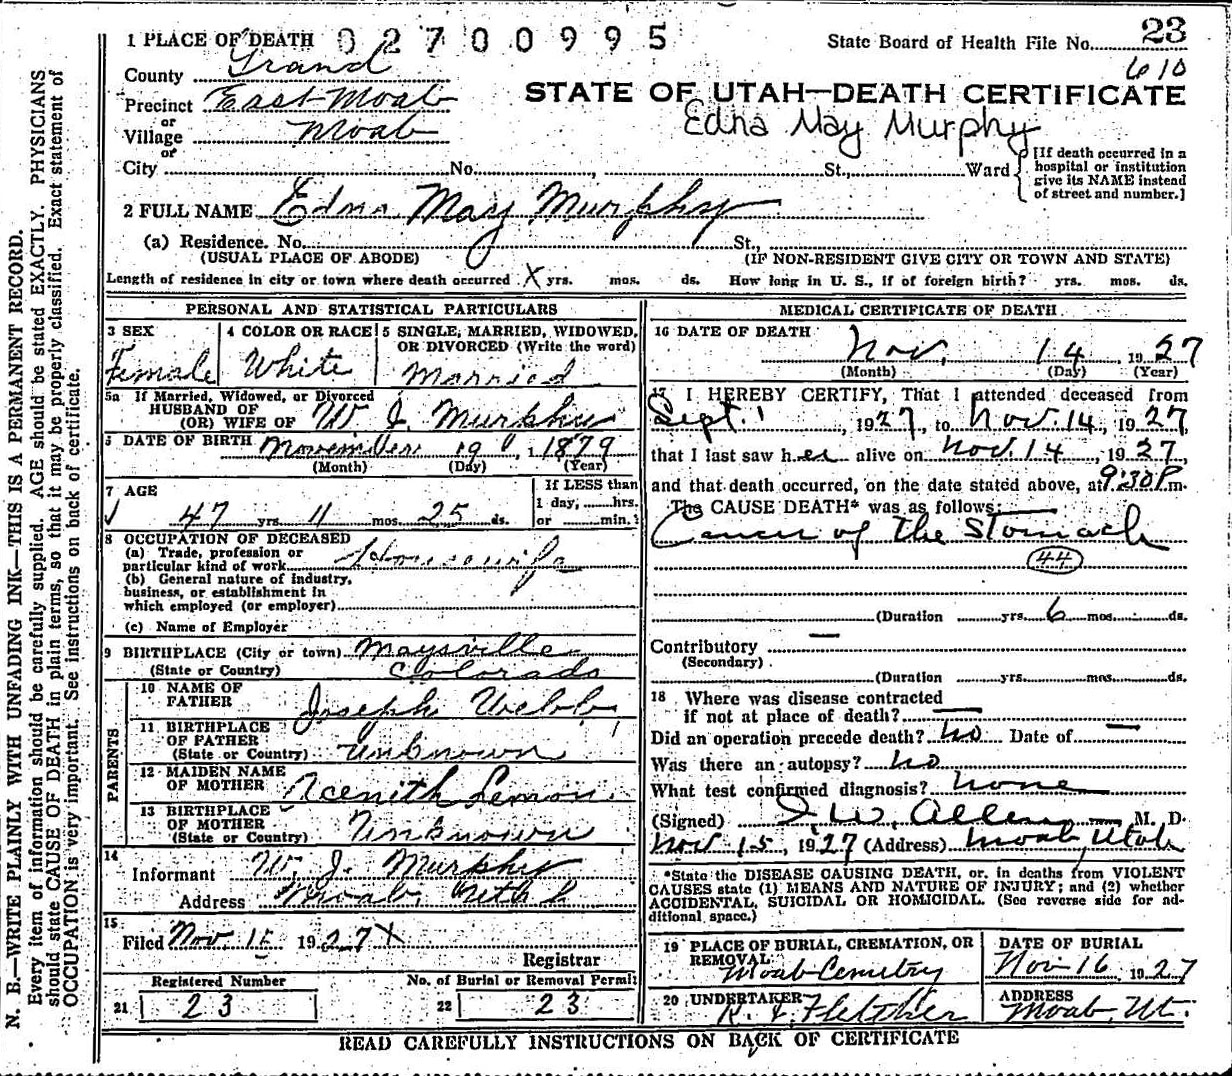 1 PLACE OF DEATH 02700995
State Board of Health File No. 23
610
County Grand
Precinct East Moab
or
Village Moab
or
City No. , St., Ward
STATE OF UTAH—DEATH CERTIFICATE
Edna May Murphy
[If death occurred in a
hospital or institution
give its NAME instead
of street and number.]
2 FULL NAME Edna May Murphy
(a) Residence. No. St.,
(USUAL PLACE OF ABODE) (IF NON-RESIDENT GIVE CITY OR TOWN AND STATE)
Length of residence in city or town where death occurred X yrs. mos. ds. How long in U. S., if of foreign birth? yrs. mos. ds.
PERSONAL AND STATISTICAL PARTICULARS
3 SEX 4 COLOR OR RACE 5 SINGLE, MARRIED, WIDOWED,
OR DIVORCED (Write the word)
Female White Married
5a If Married, Widowed, or Divorced
HUSBAND OF
(OR) WIFE OF W J. Murphy
6 DATE OF BIRTH November 19, 1879
(Month) (Day) (Year)
7 AGE If LESS than
1 day, hrs.
47 yrs. 11 mos. 25 ds. or min.?
8 OCCUPATION OF DECEASED
(a) Trade, profession or
particular kind of work Housewife
(b) General nature of industry,
business, or establishment in
which employed (or employer)
(c) Name of Employer
9 BIRTHPLACE (City or town) Maysville
(State or Country) Colorado
PARENTS
10 NAME OF
FATHER Joseph Webb
11 BIRTHPLACE
OF FATHER
(State or Country) Unknown
12 MAIDEN NAME
OF MOTHER Acenith Lemon
13 BIRTHPLACE
OF MOTHER
(State or Country) Unknown
14
Informant W. J. Murphy
Address Moab Utah
15
Filed Nov. 15 1927 X
Registrar
Registered Number No. of Burial or Removal Permit
21 23 22 23
MEDICAL CERTIFICATE OF DEATH
16 DATE OF DEATH
Nov. 14, 1927
(Month) (Day) (Year)
17 I HEREBY CERTIFY, That I attended deceased from
Sept. 1, 1927, to Nov. 14, 1927,
that I last saw her alive on Nov. 14, 1927,
and that death occurred, on the date stated above, at 9:30P.m.
The CAUSE DEATH* was as follows:
Cancer of the Stomach
44
(Duration yrs. 6 mos. ds.
Contributory —
(Secondary)
(Duration yrs. mos. ds.
18 Where was disease contracted
if not at place of death? —
Did an operation precede death? no Date of —
Was there an autopsy? no
What test confirmed diagnosis? none
(Signed) I. W. Allen M. D.
Nov 15, 1927 (Address) Moab, Utah
*State the DISEASE CAUSING DEATH, or, in deaths from VIOLENT
CAUSES state (1) MEANS AND NATURE OF INJURY; and (2) whether
ACCIDENTAL, SUICIDAL OR HOMICIDAL. (See reverse side for ad-
ditional space.)
19 PLACE OF BURIAL, CREMATION, OR
REMOVAL
Moab Cemetry
DATE OF BURIAL
Nov 16, 1927
20 UNDERTAKER
Fletcher
ADDRESS
Moab, Ut.
READ CAREFULLY INSTRUCTIONS ON BACK OF CERTIFICATE
N. B.—WRITE PLAINLY WITH UNFADING INK—THIS IS A PERMANENT RECORD.
Every item of information should be carefully supplied. AGE should be stated EXACTLY. PHYSICIANS
should state CAUSE OF DEATH in plain terms, so that it may be properly classified. Exact statement of
OCCUPATION is very important. See instructions on back of certificate.